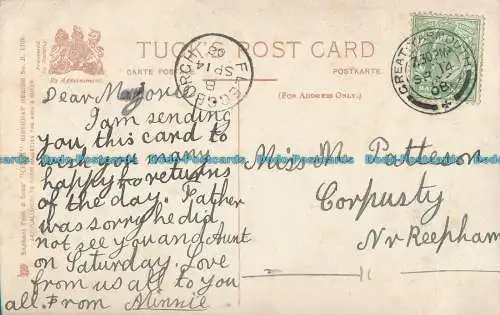 TUCK'S POST CARD
CARTE POSTALE
POSTKARTE
(FOR ADDRESS ONLY.)
By Appointment.
GREAT YARMOUTH
7.30 PM
SP 14
08
SP 14
08
B
Dear Marjorie
I am sending
you, this card to
wish you many
happy returns
of the day. Father
was sorry he did
not see you and Aunt
on Saturday. Love
from us all to you
all. From Minnie
Miss M. Patteson
Corpusty
Nr Reepham